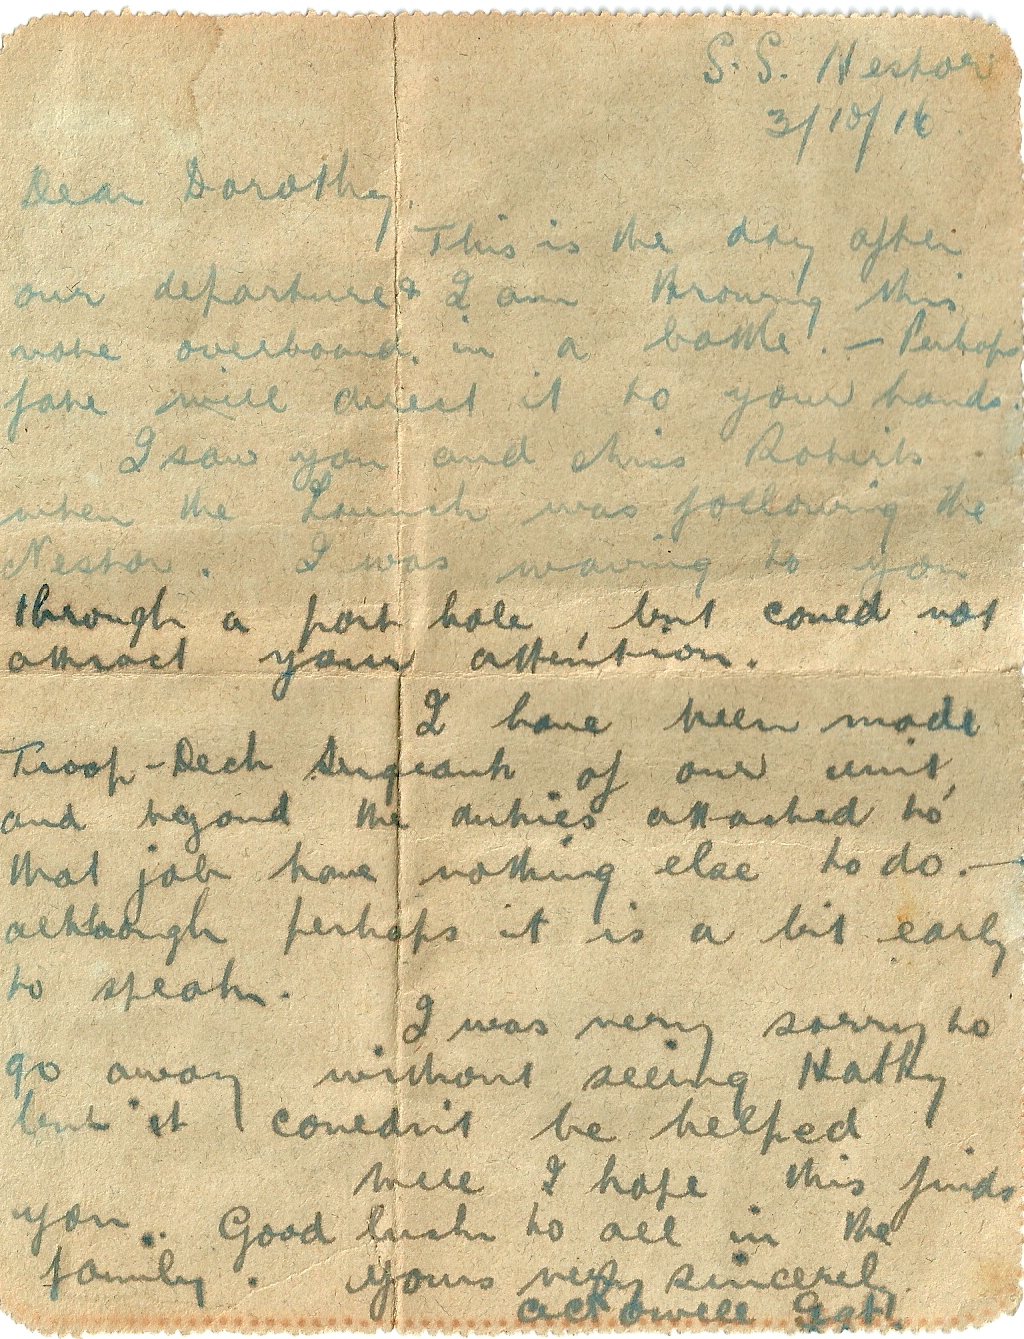 S.S. Nestor
3/10/16.
Dear Dorothy,
This is the day after
our departure & I am throwing this
note overboard in a bottle. — Perhaps
fate will direct it to your hands.
I saw you and Miss Roberts
when the Launch was following the
Nestor. I was waving to you
through a port hole, but could not
attract your attention.
I have been made
Troop-Deck Sergeant of our unit,
and beyond the duties attached to
that job have nothing else to do. —
although perhaps it is a bit early
to speak.
I was very sorry to
go away without seeing
but it couldn't be helped
Well I hope this finds
you. Good luck to all in the
family. Yours very sincerely